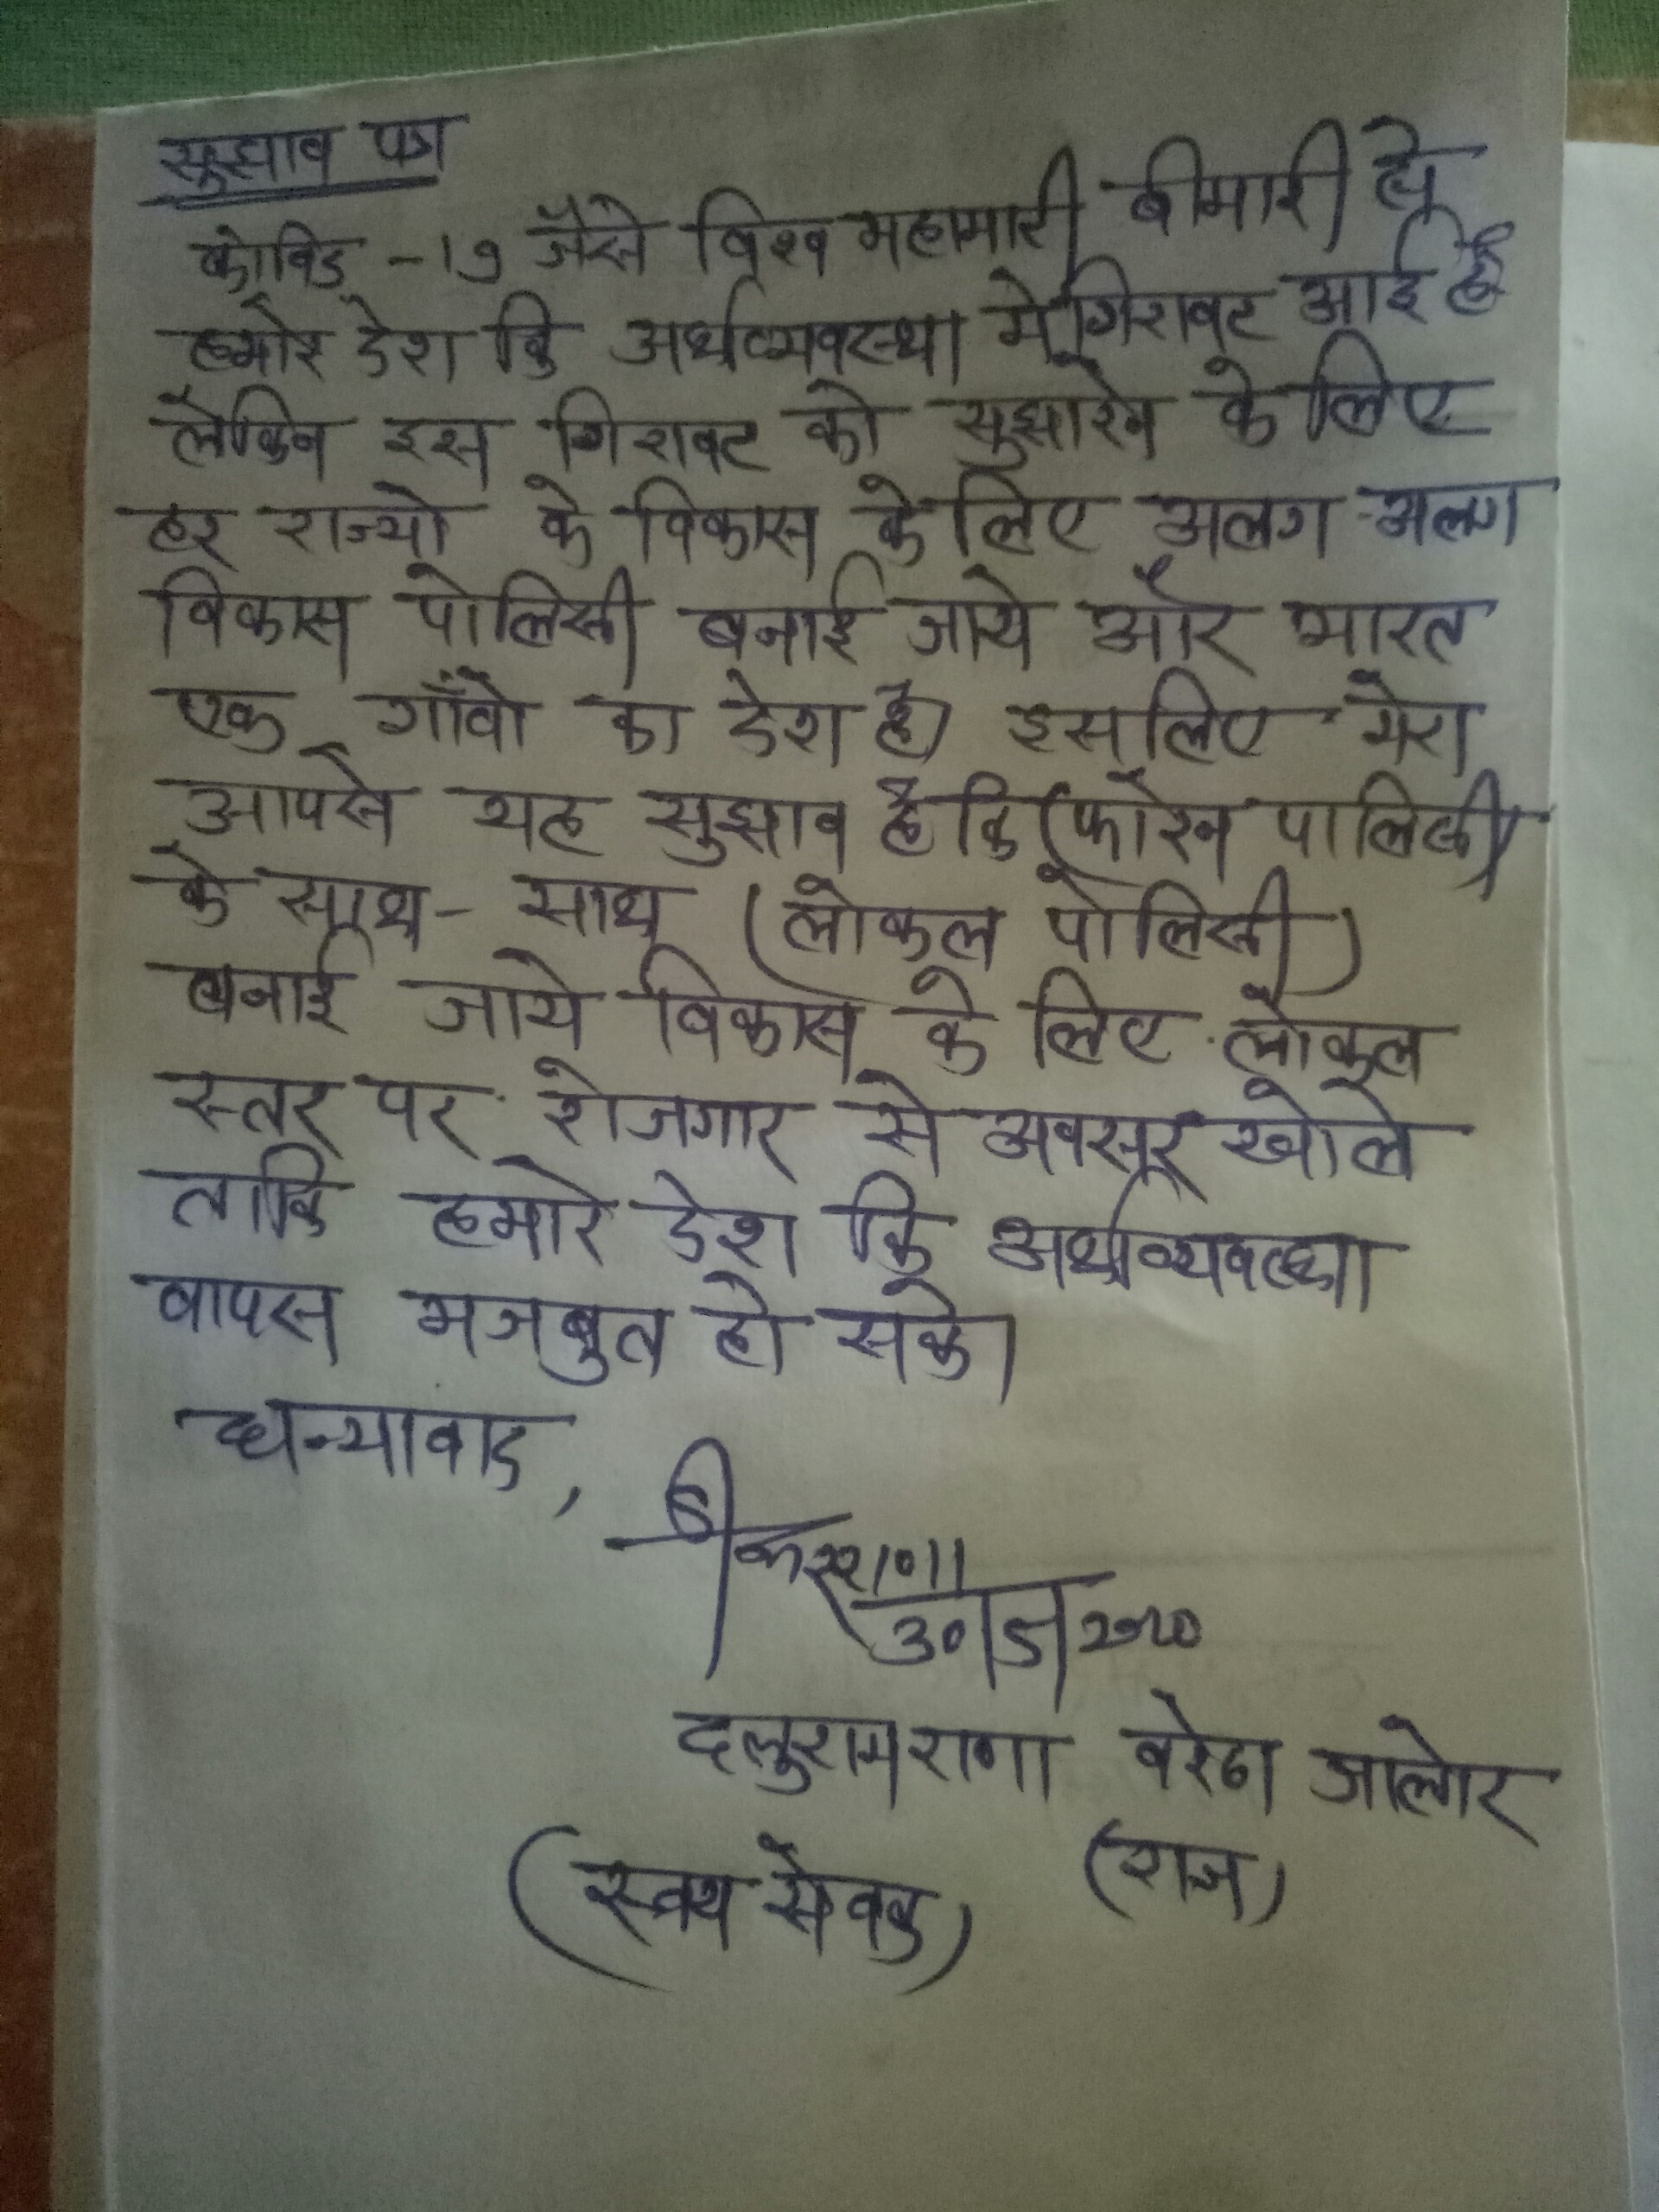 सुझाव पत्र
कोविड -19 जैसे विश्व महामारी बीमारी से
हमारे देश कि अर्थव्यवस्था मे गिरावट आई है
लेकिन इस गिरावट को सुझारने के लिए
हर राज्यो के विकास के लिए अलग-अलग
विकास पोलिसी बनाई जाये और भारत
एक गाँवो का देश है। इसलिए मेरा
आपसे यह सुझाव है कि (फोरेन पालिसी)
के साथ - साथ (लोकल पोलिसी)
बनाई जाये विकास के लिए लोकल
स्तर पर रोजगार से अवसर खोले
ताकि हमारे देश कि अर्थव्यवस्था
वापस मजबुत हो सके।
धन्यावाद,
30/5/2020
दलुराम राणा वरेठा जालोर
(स्वय सेवक) (राज)